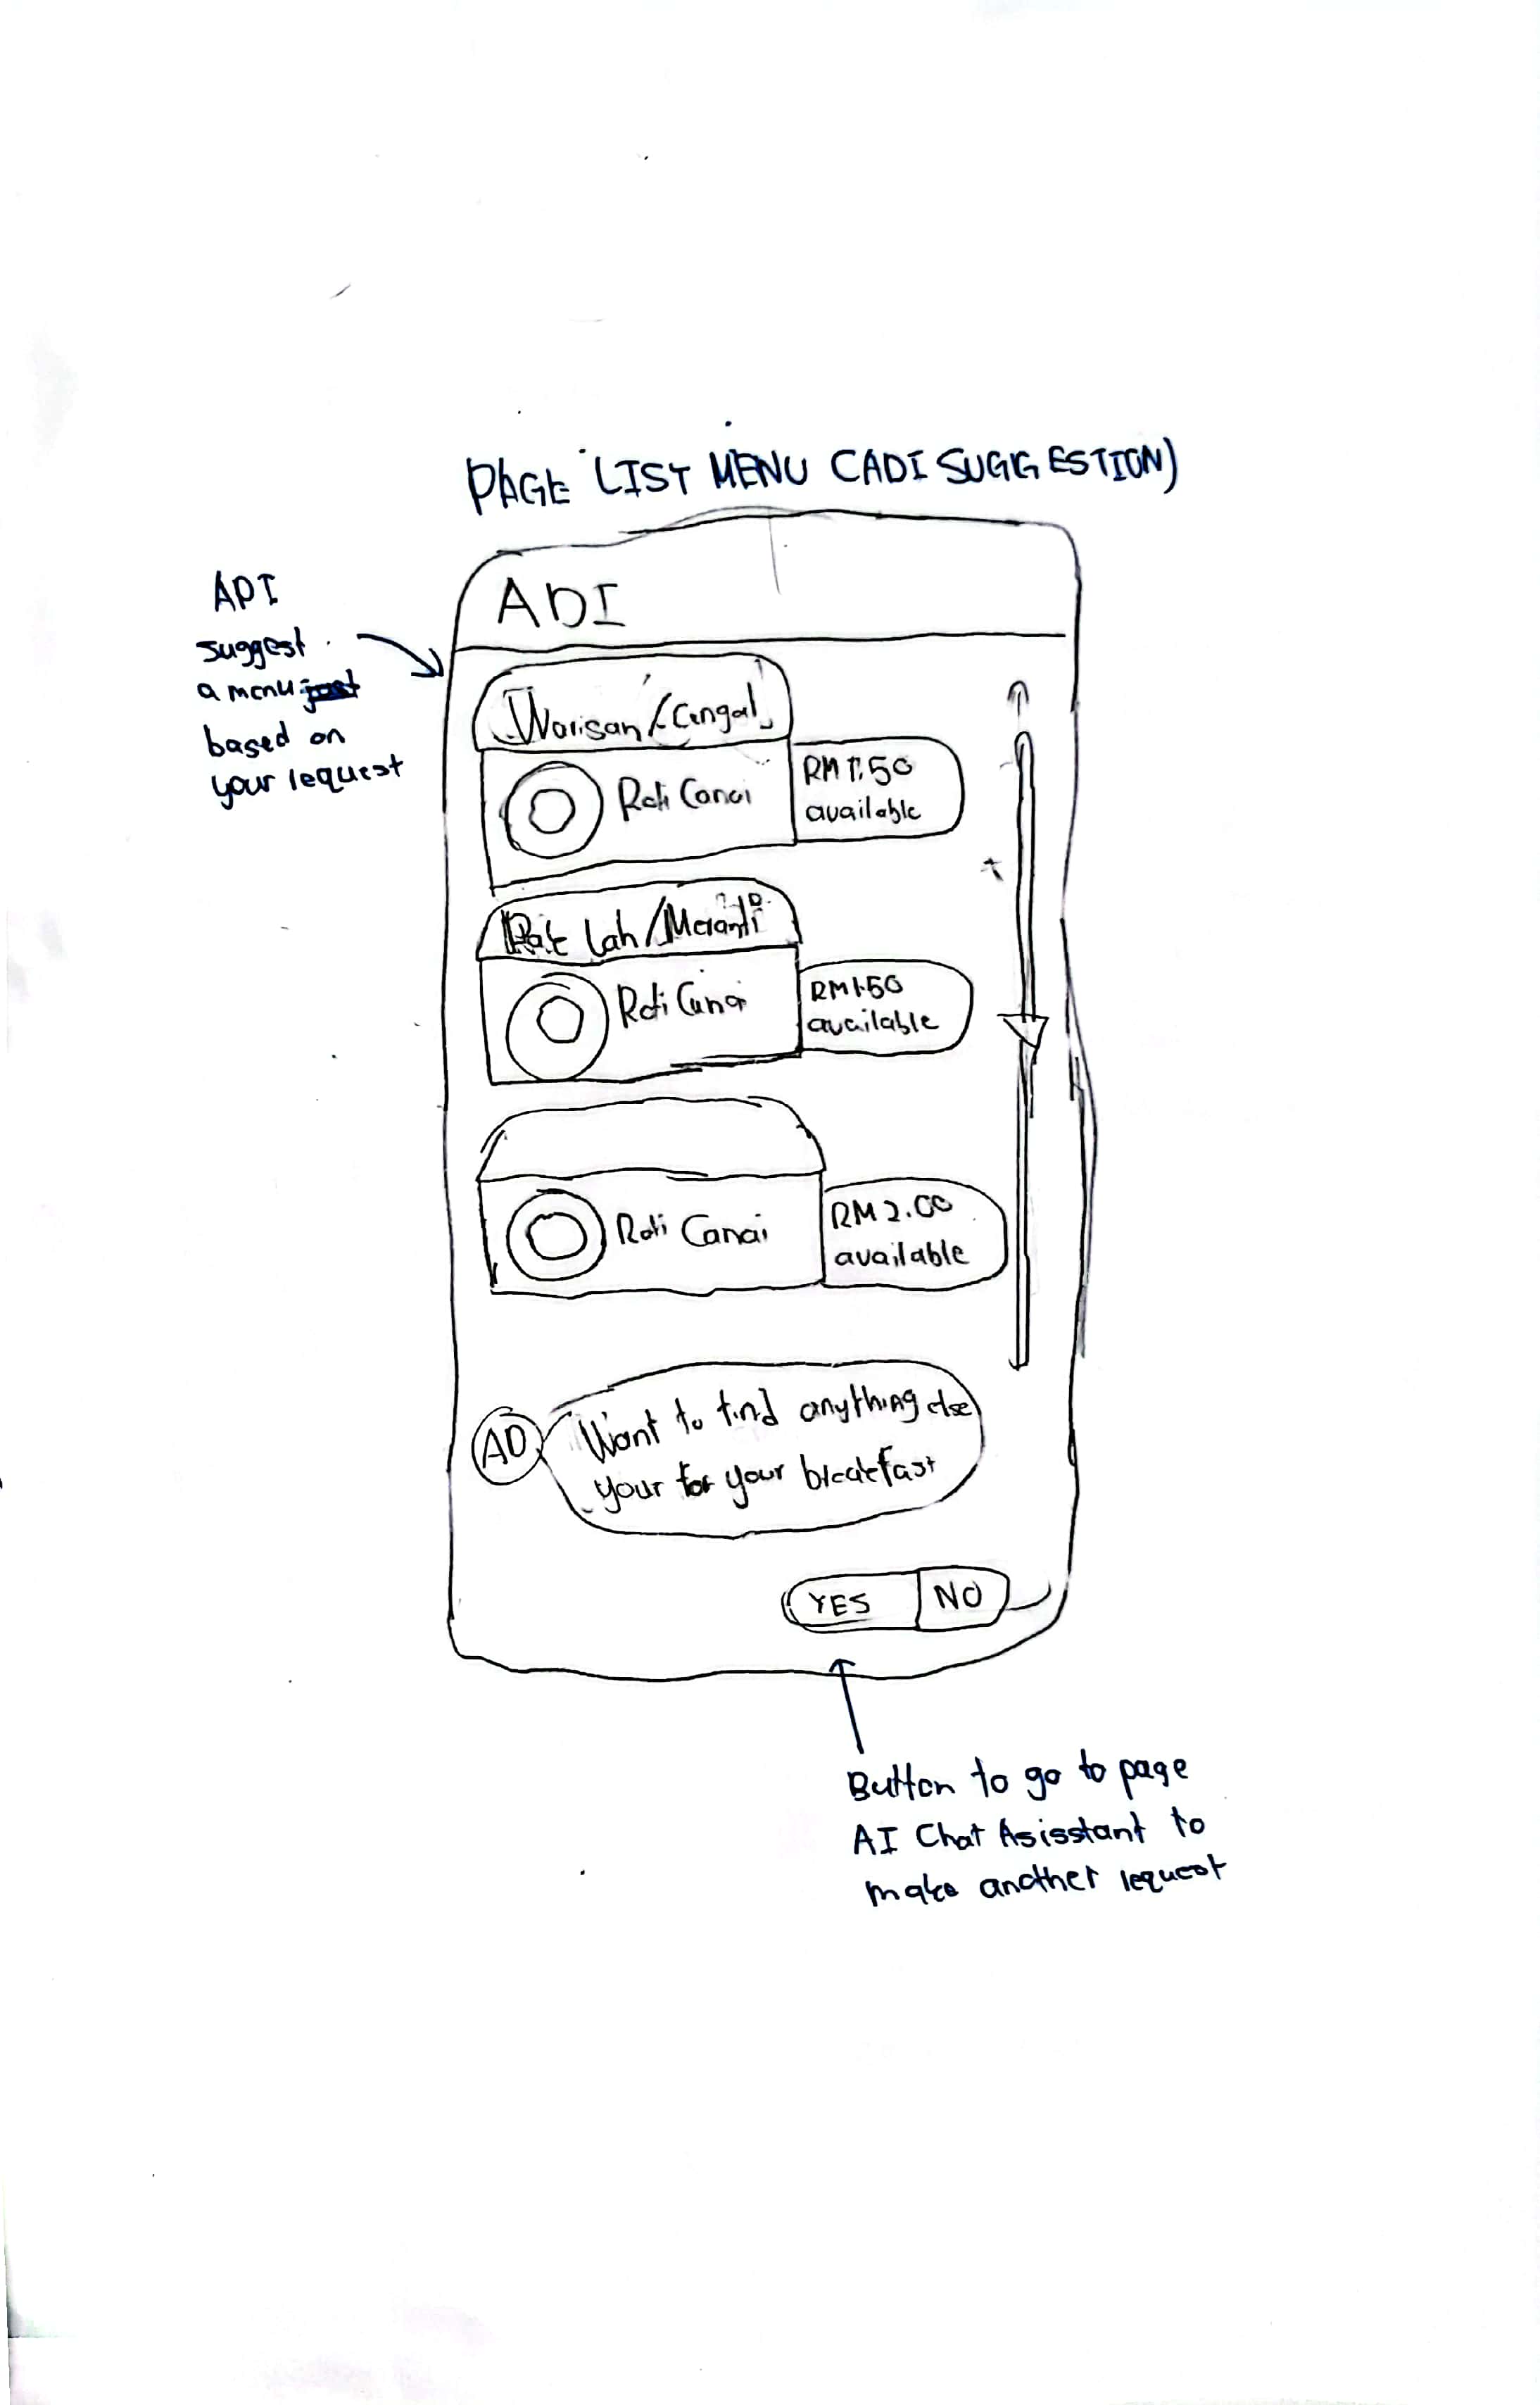 PAGE LIST MENU (ADI SUGGESTION)
ADI
suggest
a menu
based on
your request
ADI
Warisan / Cengal
Roti Canai
RM 1.50
available
Pak Lah / Meranti
Roti Canai
RM 1.50
available
Roti Canai
RM 2.00
available
AD
Want to find anything else
your for your breakfast
YES NO
Button to go to page
AI Chat Asisstant to
make another request